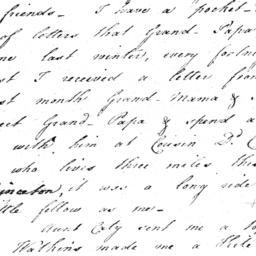 friends - I have a pocket-
of letters that Grand-Papa
me last winter, every fortn
st I received a letter from
st month Grand-Mama &
eet Grand-Papa & spend a
with him at Cousin D. C
who lives three miles this
inceton, it was a long ride
ttle fellow as me -
Aunt Caty sent me a
Watkins made me a